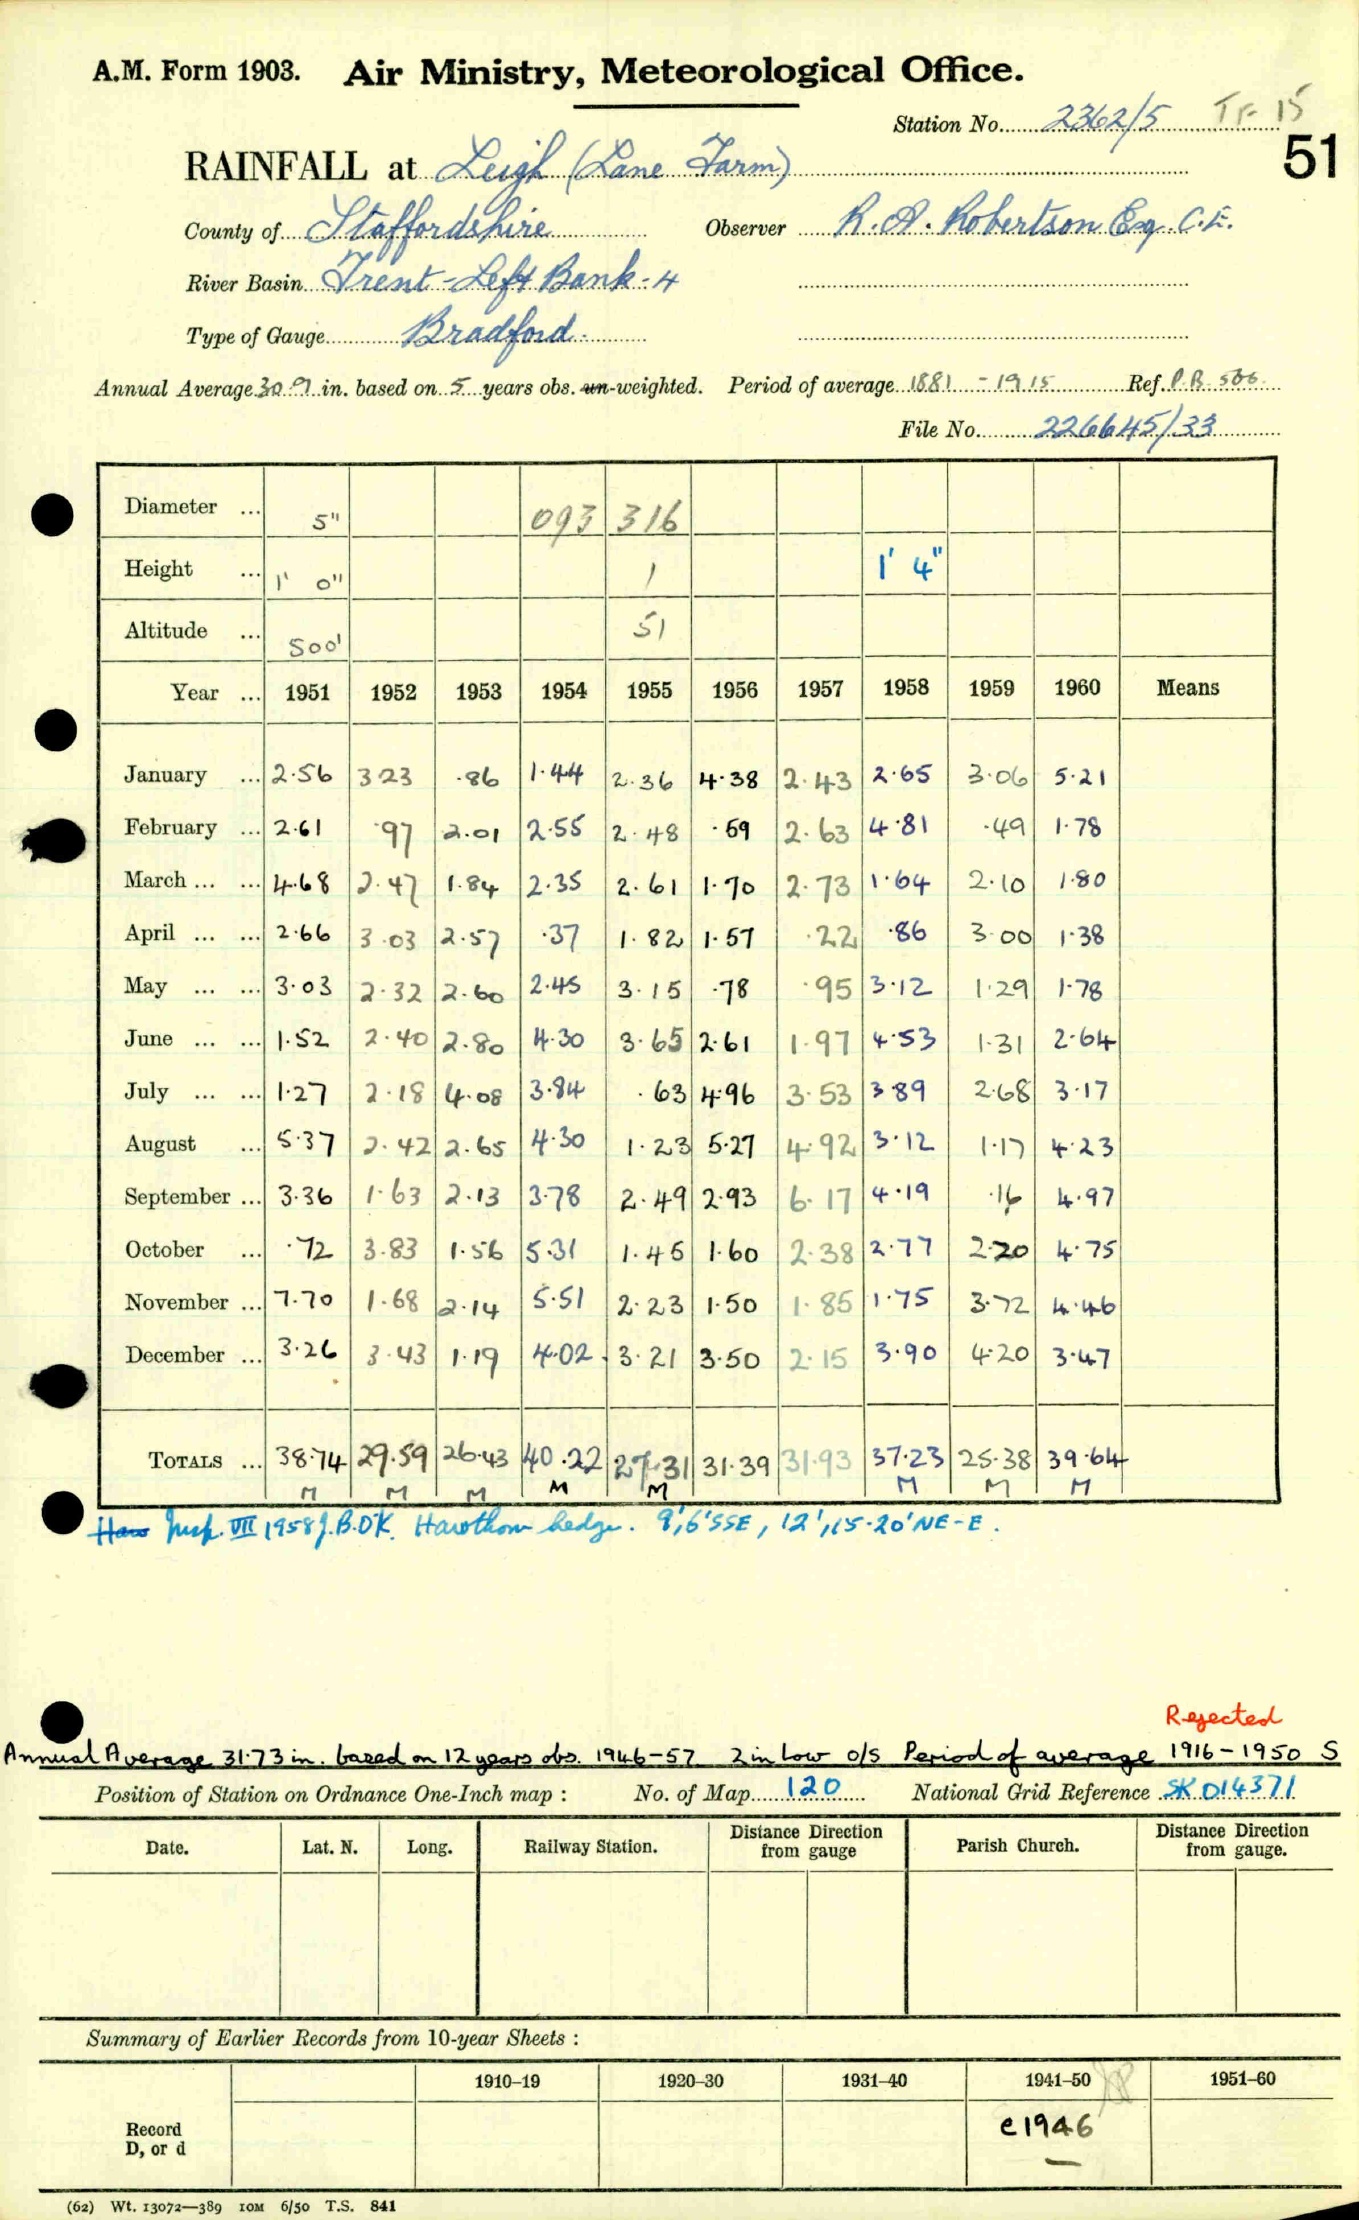 A.M. Form 1903. Air Ministry, Meteorological Office.
Station No. 2362/5 TF 15
51
RAINFALL at Leigh (Lane Farm)
County of Staffordshire Observer R. A. Robertson Esq. C.E.
River Basin Trent - Left Bank - 4
Type of Gauge Bradford
Annual Average 30.9 in. based on 5 years obs. un-weighted. Period of average 1881 - 1915 Ref.
File No. 226645/33
Diameter ... 5" 093 316
Height ... 1' 0" 1 1' 4"
Altitude ... 500' 51
Year ... 1951 1952 1953 1954 1955 1956 1957 1958 1959 1960 Means
January ... 2.56 3.23 .86 1.44 2.36 4.38 2.43 2.65 3.06 5.21
February ... 2.61 .97 2.01 2.55 2.48 .59 2.63 4.81 .49 1.78
March ... ... 4.68 2.47 1.84 2.35 2.61 1.70 2.73 1.64 2.10 1.80
April ... ... 2.66 3.03 2.57 .37 1.82 1.57 .22 .86 3.00 1.38
May ... ... 3.03 2.32 2.60 2.45 3.15 .78 .95 3.12 1.29 1.78
June ... ... 1.52 2.40 2.80 4.30 3.65 2.61 1.97 4.53 1.31 2.64
July ... ... 1.27 2.18 4.08 3.84 .63 4.96 3.53 3.89 2.68 3.17
August ... 5.37 2.42 2.65 4.30 1.23 5.27 4.92 3.12 1.17 4.23
September ... 3.36 1.63 2.13 3.78 2.49 2.93 6.17 4.19 .16 4.97
October ... .72 3.83 1.56 5.31 1.45 1.60 2.38 2.77 2.20 4.75
November ... 7.70 1.68 2.14 5.51 2.23 1.50 1.85 1.75 3.72 4.46
December ... 3.26 3.43 1.19 4.02 3.21 3.50 2.15 3.90 4.20 3.47
TOTALS ... 38.74 29.59 26.43 40.22 27.31 31.39 31.93 37.23 25.38 39.64
M M M M M M M M
Haw Insp. VIII 1958 J.B.O'K. Hawthorn hedge. 9', 6' SSE, 12', 15-20' NE-E.
Rejected
Annual Average 31.73 in. based on 12 years obs. 1946-57 2 in Low O/S Period of average 1916-1950 S
Position of Station on Ordnance One-Inch map : No. of Map 120 National Grid Reference SK 014371
Date. Lat. N. Long. Railway Station. Distance Direction from gauge Parish Church. Distance Direction from gauge.
Summary of Earlier Records from 10-year Sheets :
1910-19 1920-30 1931-40 1941-50 1951-60
Record D, or d c1946
(62) Wt. 13072—389 10M 6/50 T.S. 841